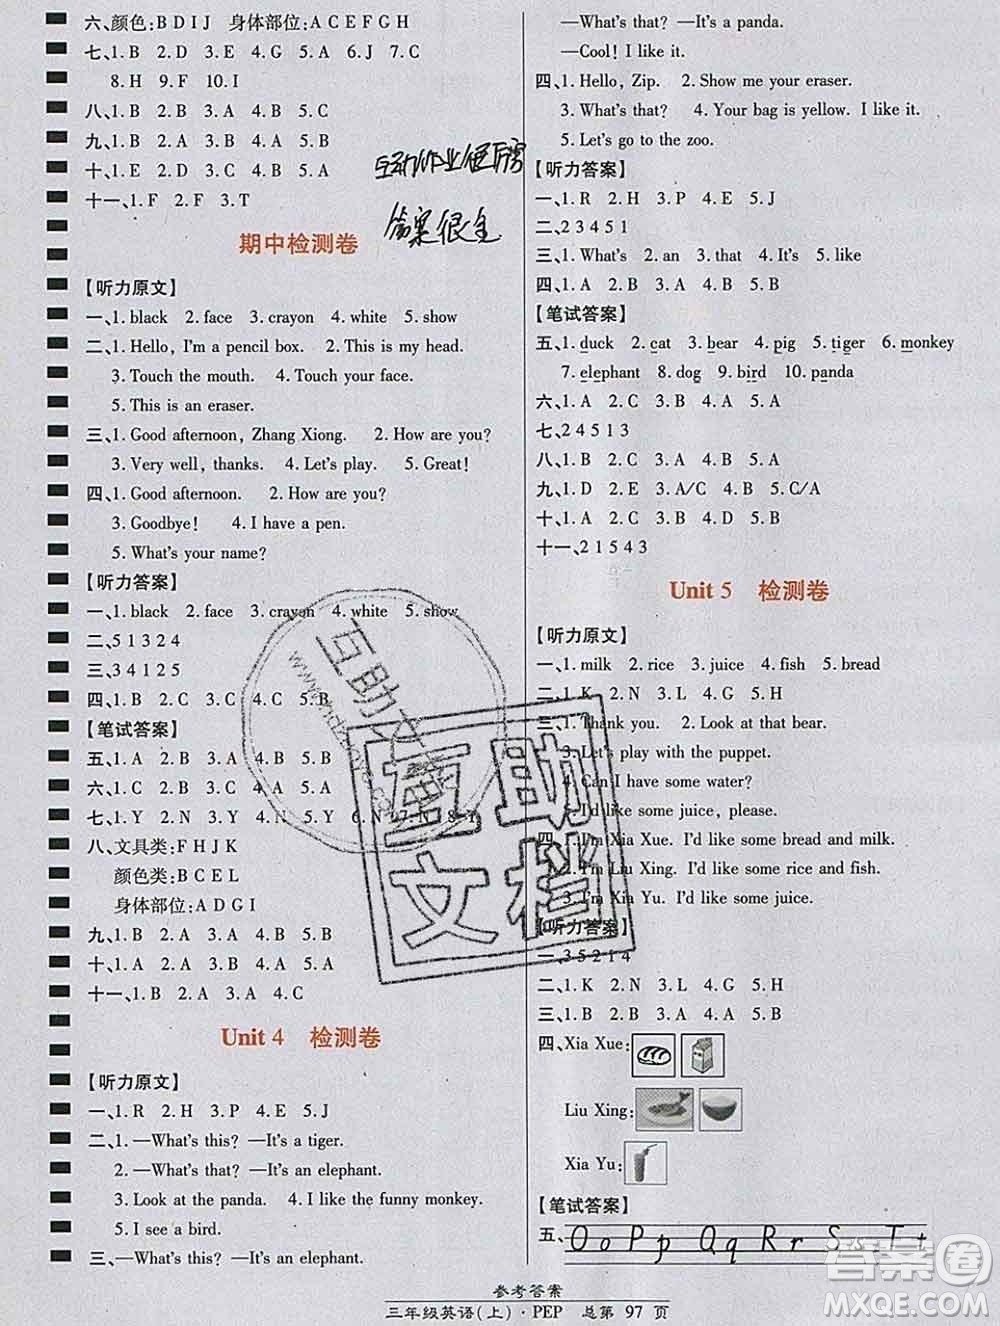 六、颜色:B D I J 身体部位:A C E F G H
七、1. B 2. D 3. E 4. G 5. A 6. J 7. C
8. H 9. F 10. I
八、1. B 2. B 3. A 4. B 5. C
九、1. B 2. B 3. A 4. B 5. A
十、1. E 2. D 3. A 4. C 5. B
十一、1. F 2. F 3. T
期中检测卷
【听力原文】
一、1. black 2. face 3. crayon 4. white 5. show
二、1. Hello, I'm a pencil box. 2. This is my head.
3. Touch the mouth. 4. Touch your face.
5. This is an eraser.
三、1. Good afternoon, Zhang Xiong. 2. How are you?
3. Very well, thanks. 4. Let's play. 5. Great!
四、1. Good afternoon. 2. How are you?
3. Goodbye! 4. I have a pen.
5. What's your name?
【听力答案】
一、1. black 2. face 3. crayon 4. white 5. show
二、5 1 3 2 4
三、3 4 1 2 5
四、1. B 2. C 3. C 4. C 5. B
【笔试答案】
五、1. A 2. B 3. A 4. B 5. B
六、1. C 2. B 3. A 4. A 5. A
七、1. Y 2. Y 3. Y 4. N 5. Y 6. N 7. N 8. Y
八、文具类:F H J K
颜色类:B C E L
身体部位:A D G I
九、1. B 2. A 3. A 4. B 5. B
十、1. A 2. B 3. A 4. B 5. A
十一、1. B 2. A 3. A 4. C
Unit 4 检测卷
【听力原文】
一、1. R 2. H 3. P 4. E 5. J
二、1. —What's this? —It's a tiger.
2. —What's that? —It's an elephant.
3. Look at the panda. 4. I like the funny monkey.
5. I see a bird.
三、—What's this? —It's an elephant.
—What's that? —It's a panda.
—Cool! I like it.
四、1. Hello, Zip. 2. Show me your eraser.
3. What's that? 4. Your bag is yellow. I like it.
5. Let's go to the zoo.
【听力答案】
一、1. R 2. H 3. P 4. E 5. J
二、2 3 4 5 1
三、1. What's 2. an 3. that 4. It's 5. like
四、1. A 2. B 3. A 4. B 5. B
【笔试答案】
五、1. duck 2. cat 3. bear 4. pig 5. tiger 6. monkey
7. elephant 8. dog 9. bird 10. panda
六、1. A 2. C 3. B 4. A 5. A
七、2 4 5 1 3
八、1. A 2. C 3. B 4. A 5. B
九、1. D 2. E 3. A/C 4. B 5. A/C
十、1. A 2. C 3. A 4. B 5. B
十一、2 1 5 4 3
Unit 5 检测卷
【听力原文】
一、1. milk 2. rice 3. juice 4. fish 5. bread
二、1. K 2. N 3. L 4. G 5. H
三、1. Thank you. 2. Look at that bear.
3. Let's play with the puppet.
4. Can I have some water?
5. I'd like some juice, please.
四、1. I'm Xia Xue. I'd like some bread and milk.
2. I'm Liu Xing. I'd like some rice and fish.
3. I'm Xia Yu. I'd like some juice.
【听力答案】
一、3 5 2 1 4
二、1. K 2. N 3. L 4. G 5. H
三、1. B 2. A 3. A 4. B 5. B
四、Xia Xue:
Liu Xing:
Xia Yu:
【笔试答案】
五、Oo Pp Qq Rr Ss Tt
参考答案
三年级英语(上)·PEP 总第 97 页
互助文档
互助文档
答案很全
答案圈
MXQE.COM